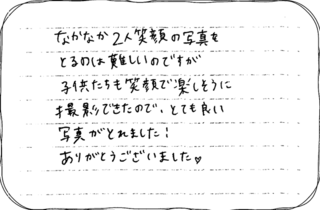 なかなか2人笑顔の写真を
とるのは難しいのですが
子供たちも笑顔で楽しそうに
撮影できたので、とても良い
写真がとれました!
ありがとうございました♡